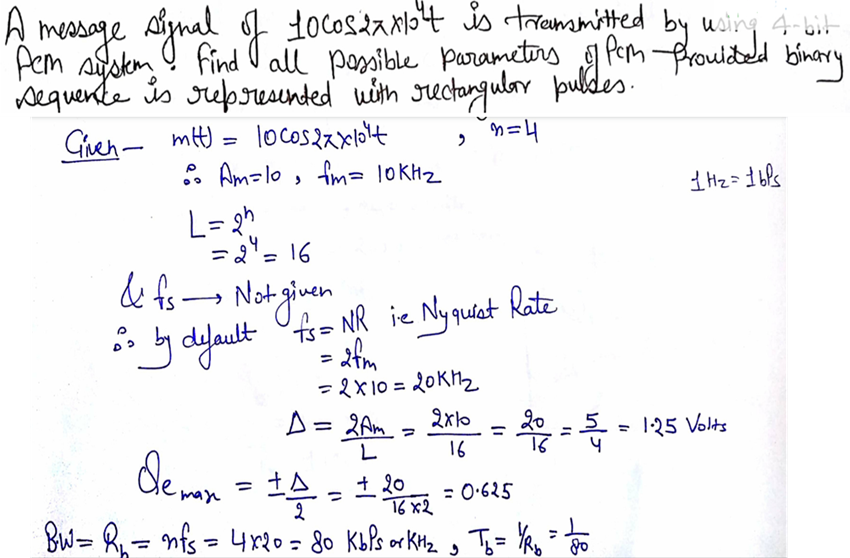 A message signal of 10cos2π×10⁴t is transmitted by using 4-bit
Pcm system. Find all possible parameters of Pcm Provided binary
sequence is represented with rectangular pulses.
Given— m(t) = 10cos2π×10⁴t , n=4
∴ Am=10 , fm= 10KHz
1Hz=1bPs
L= 2ⁿ
= 2⁴ = 16
& fs → Not given
∴ by default fs= NR i.e Nyquist Rate
= 2fm
= 2×10 = 20KHz
Δ = 2Am/L = 2×10/16 = 20/16 = 5/4 = 1.25 Volts
Qe max = ±Δ/2 = ± 20/16×2 = 0.625
BW= Rb = nfs = 4×20 = 80 KbPs or KHz , Tb= 1/Rb = 1/80